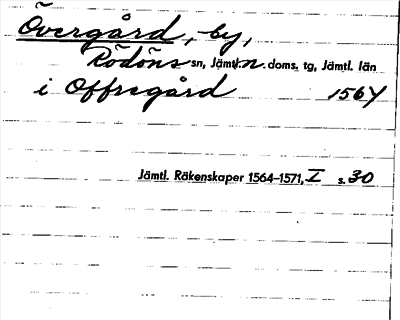 Övergård, by,
Rödöns sn, Jämtl. n. doms. tg, Jämtl. län
i Offregård 1564
Jämtl. Räkenskaper 1564–1571, I s. 30